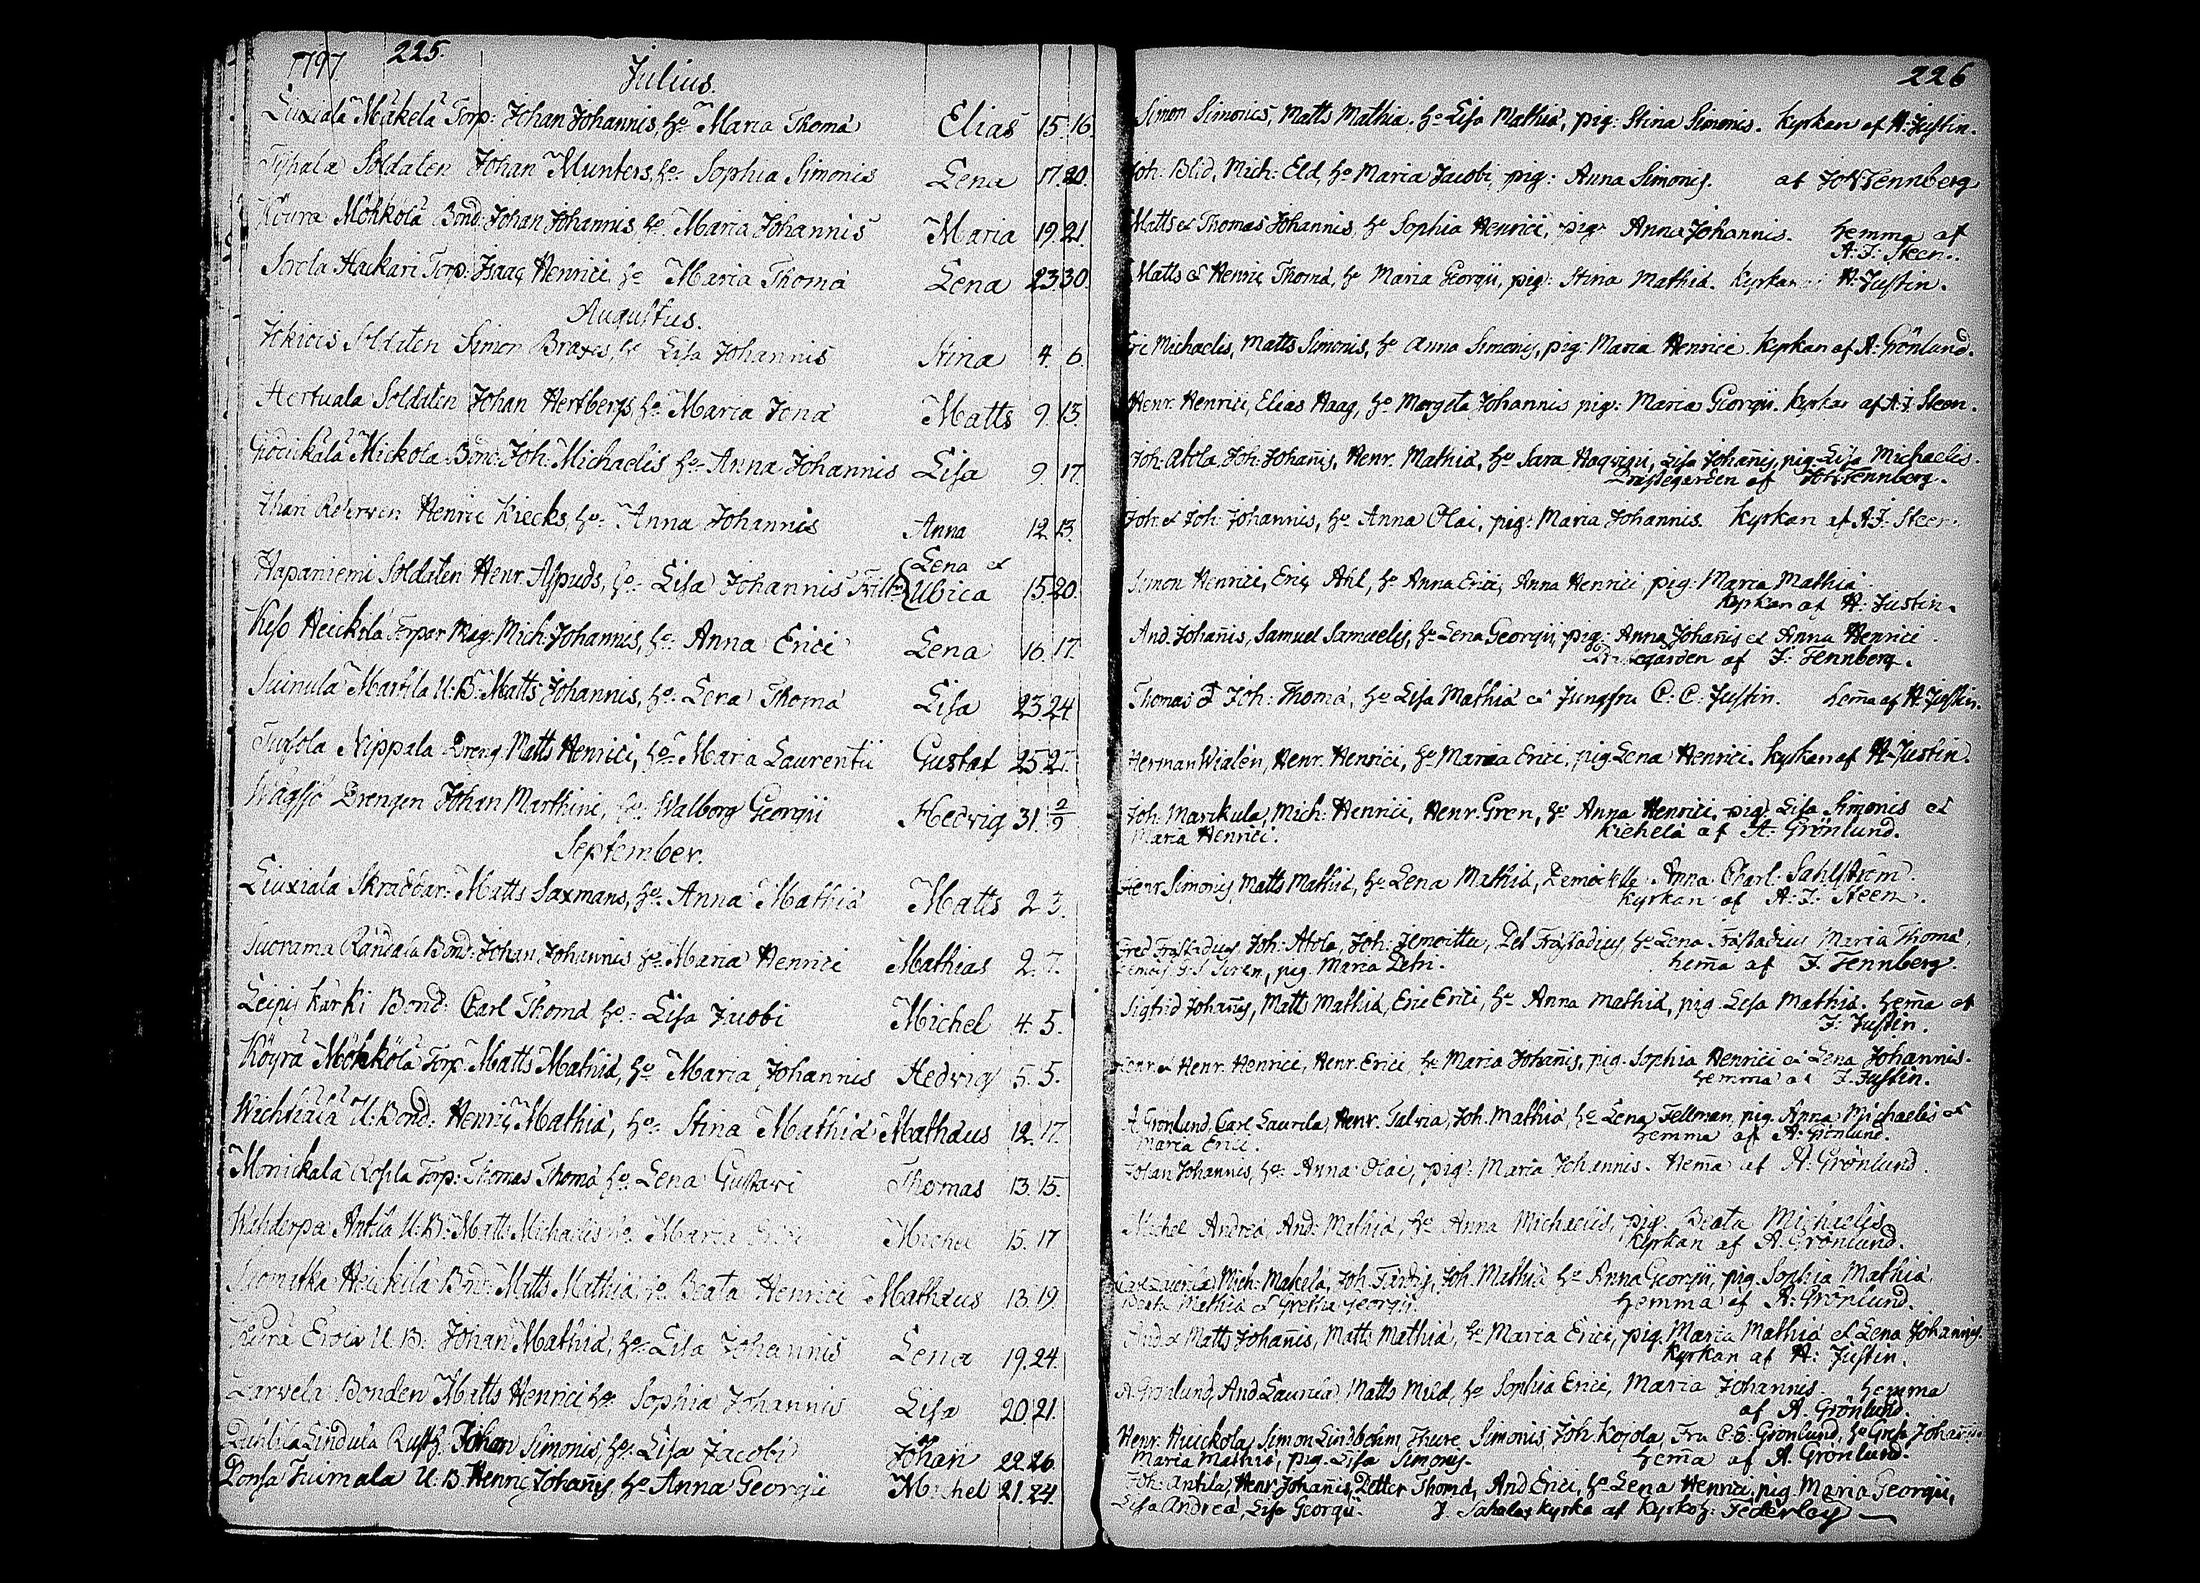 1797. 225.
Julius.
Liuxiala Mäkelä Torp: Johan Johannis, ho Maria Thomæ Elias 15. 16.
Soldaten Johan Munters, ho: Sophia Simonis Lena 17. 20.
Köyrä Möhkölä Bond: Johan Johannis ho Maria Johannis Maria 19. 21.
Sorola Hackari Torp: Isaac Henrici ho Maria Thomæ Lena 23. 30.
Augustus.
Jokiois Soldaten Simon Braxes, ho Lisa Johannis Stina 4. 6.
Hertuala Soldaten Johan Hertbergs, ho: Maria Jonæ Matts 9. 13.
Mickola Bond: Joh: Michaelis ho: Anna Johannis Lisa 9. 17.
Henric Kiecks, ho: Anna Johannis Anna 12. 13.
Hapaniemi Soldaten Henr. Aspuds, ho: Lisa Johannis Trill: { Lena et
Ulrica 15. 20.
Heickilä Torpar Mag: Mich: Johannis, ho: Anna Erici Lena 16. 17.
Suinula Marttila U: B: Matts Johannis, ho: Lena Thomæ Lisa 23. 24
Nippala Dreng Matts Henrici, ho: Maria Laurentii Gustaf 25. 27.
Wägsjö Drengen Johan Marthini, ho: Walborg Georgii Hedvig 31. 2/9
September.
Liuxiala Skräddar: Matts Saxmans, ho: Anna Mathiæ Matts 2. 3.
Suorama Bond: Johan Johannis ho: Maria Henrici Mathias 2. 7.
Leipis Kärki Bond: Carl Thomæ ho: Lisa Jacobi Michel 4. 5.
Köyrä Möhkölä Torp: Matts Mathiæ, ho Maria Johannis Hedvig 5. 5.
U: Bond: Henric Mathiæ, ho: Stina Mathiæ Mathæus 12. 17.
Monickala Rossila Torp: Thomas Thomæ ho: Lena Gustavi Thomas 13. 15.
Wähderpä Anttila U: B: Matts Michaelis ho: Maria Erici Michel 15. 17
Heickilä Bond: Matts Mathiæ, ho: Beata Henrici Mathæus 13. 19.
Köyrä Erola U. B: Johan Mathiæ, ho: Lisa Johannis Lena 19. 24.
Sarvela Bonden Matts Henrici, ho: Sophia Johannis Lisa 20. 21.
Lindula Rusth: Johan Simonis, ho: Lisa Jacobi Johan 22. 26
U. B Henric Johañis ho: Anna Georgii Michel 21. 24.
226
Simon Simonis, Matts Mathiæ, ho Lisa Mathiæ, pig: Stina Simonis. Kyrkan af H: Justin.
Joh: Blid, Mich: Eld, ho Maria Jacobi, pig: Anna Simonis. af Joh Tennberg
Matts et Thomas Johannis, ho Sophia Henrici, pig: Anna Johannis. hemma af
A: J: Steen.
Matts et Henric Thomæ, ho Maria Georgii, pig: Stina Mathiæ. Kyrkan af H: Justin.
Eric Michaelis, Matts Simonis, ho Anna Simonis, pig: Maria Henrici. Kyrkan af A: Grönlund.
Henr: Henrici, Elias Haag, ho Margeta Johannis pig: Maria Georgii. Kyrkan af A: J. Steen.
Joh: Alola, Joh: Johañis, Henr. Mathiæ, ho Sara Haqvini, Lisa Johañis, pig: Lisa Michaelis.
Prästegården af Joh Tennberg.
Joh: et Joh: Johannis, ho Anna Olai, pig: Maria Johannis. Kyrkan af A: J: Steen.
Simon Henrici, Eric Ahl, ho Anna Erici, Anna Henrici pig: Maria Mathiæ.
Kyrkan af H: Justin.
And. Johañis, Samuel Samuelis, ho Lena Georgii, pig: Anna Johañis et Anna Henrici
Prästegården af J: Tennberg.
Thomas et Joh: Thomæ, ho Lisa Mathiæ et Jungfru C: C: Justin. hem̄a af H: Justin.
Herman Wialén, Henr. Henrici, ho Maria Erici, pig Lena Henrici. Kyrkan af H: Justin.
Joh: Marckula, Mich: Henrici, Henr. Gren, ho Anna Henrici, pig: Lisa Simonis et
Maria Henrici. Kiehelä af A: Grönlund.
Henr. Simonis, Matts Mathiæ, ho Lena Mathiæ, Demoiselle Anna Charl: Sahlström.
Kyrkan af A: J: Steen.
Joh: Alola, Joh: ho Lena Maria Thomæ,
pig: Maria Petri. hem̄a af J. Tennberg.
Sigfrid Johañis, Matts Mathiæ, Eric Erici, ho Anna Mathiæ, pig: Lisa Mathiæ. hem̄a af
J: Justin.
Henr. et Henr. Henrici, Henr. Erici ho Maria Johañis, pig: Sophia Henrici et Lena Johannis.
hemma af J. Justin.
A. Grönlund, Carl Laurila, Henr. Talvia, Joh. Mathiæ, ho Lena Fellman, pig. Anna Michaelis et
Maria Erici. hemma af A: Grönlund.
Johan Johannis, ho: Anna Olai, pig: Maria Johannis. hem̄a af A: Grönlund.
Michel Andreæ, And: Mathiæ, ho Anna Michaelis, pig: Beata Michaelis
Kyrkan af A. Grönlund.
Carl Laurila, Mich: Mäkelä, Joh: Joh. Mathiæ ho Anna Georgii, pig. Sophia Mathiæ
Mathiæ et Gretha Georgii. hemma af A: Grönlund.
And: et Matts Johañis, Matts Mathiæ, ho Maria Erici, pig. Maria Mathiæ et Lena Johannis.
Kyrkan af H: Justin.
A Grönlund, And Laurila, Matts Mild, ho Sophia Erici, Maria Johannis. hemma
af A. Grönlund.
Henr. Huickola, Simon Lindbohm, Thure Simonis, Joh. Kojola, Fru C: E: Grönlund, ho Greta Johañis
Maria Mathiæ, pig: Lisa Simonis. hem̄a af A. Grönlund.
Joh: Antila, Henr. Johañis, Petter Thomæ, And Erici, ho Lena Henrici, pig: Maria Georgii,
Lisa Andreæ, Lisa Georgii. J. Sahalax kyrka af Kyrkoh: Federley